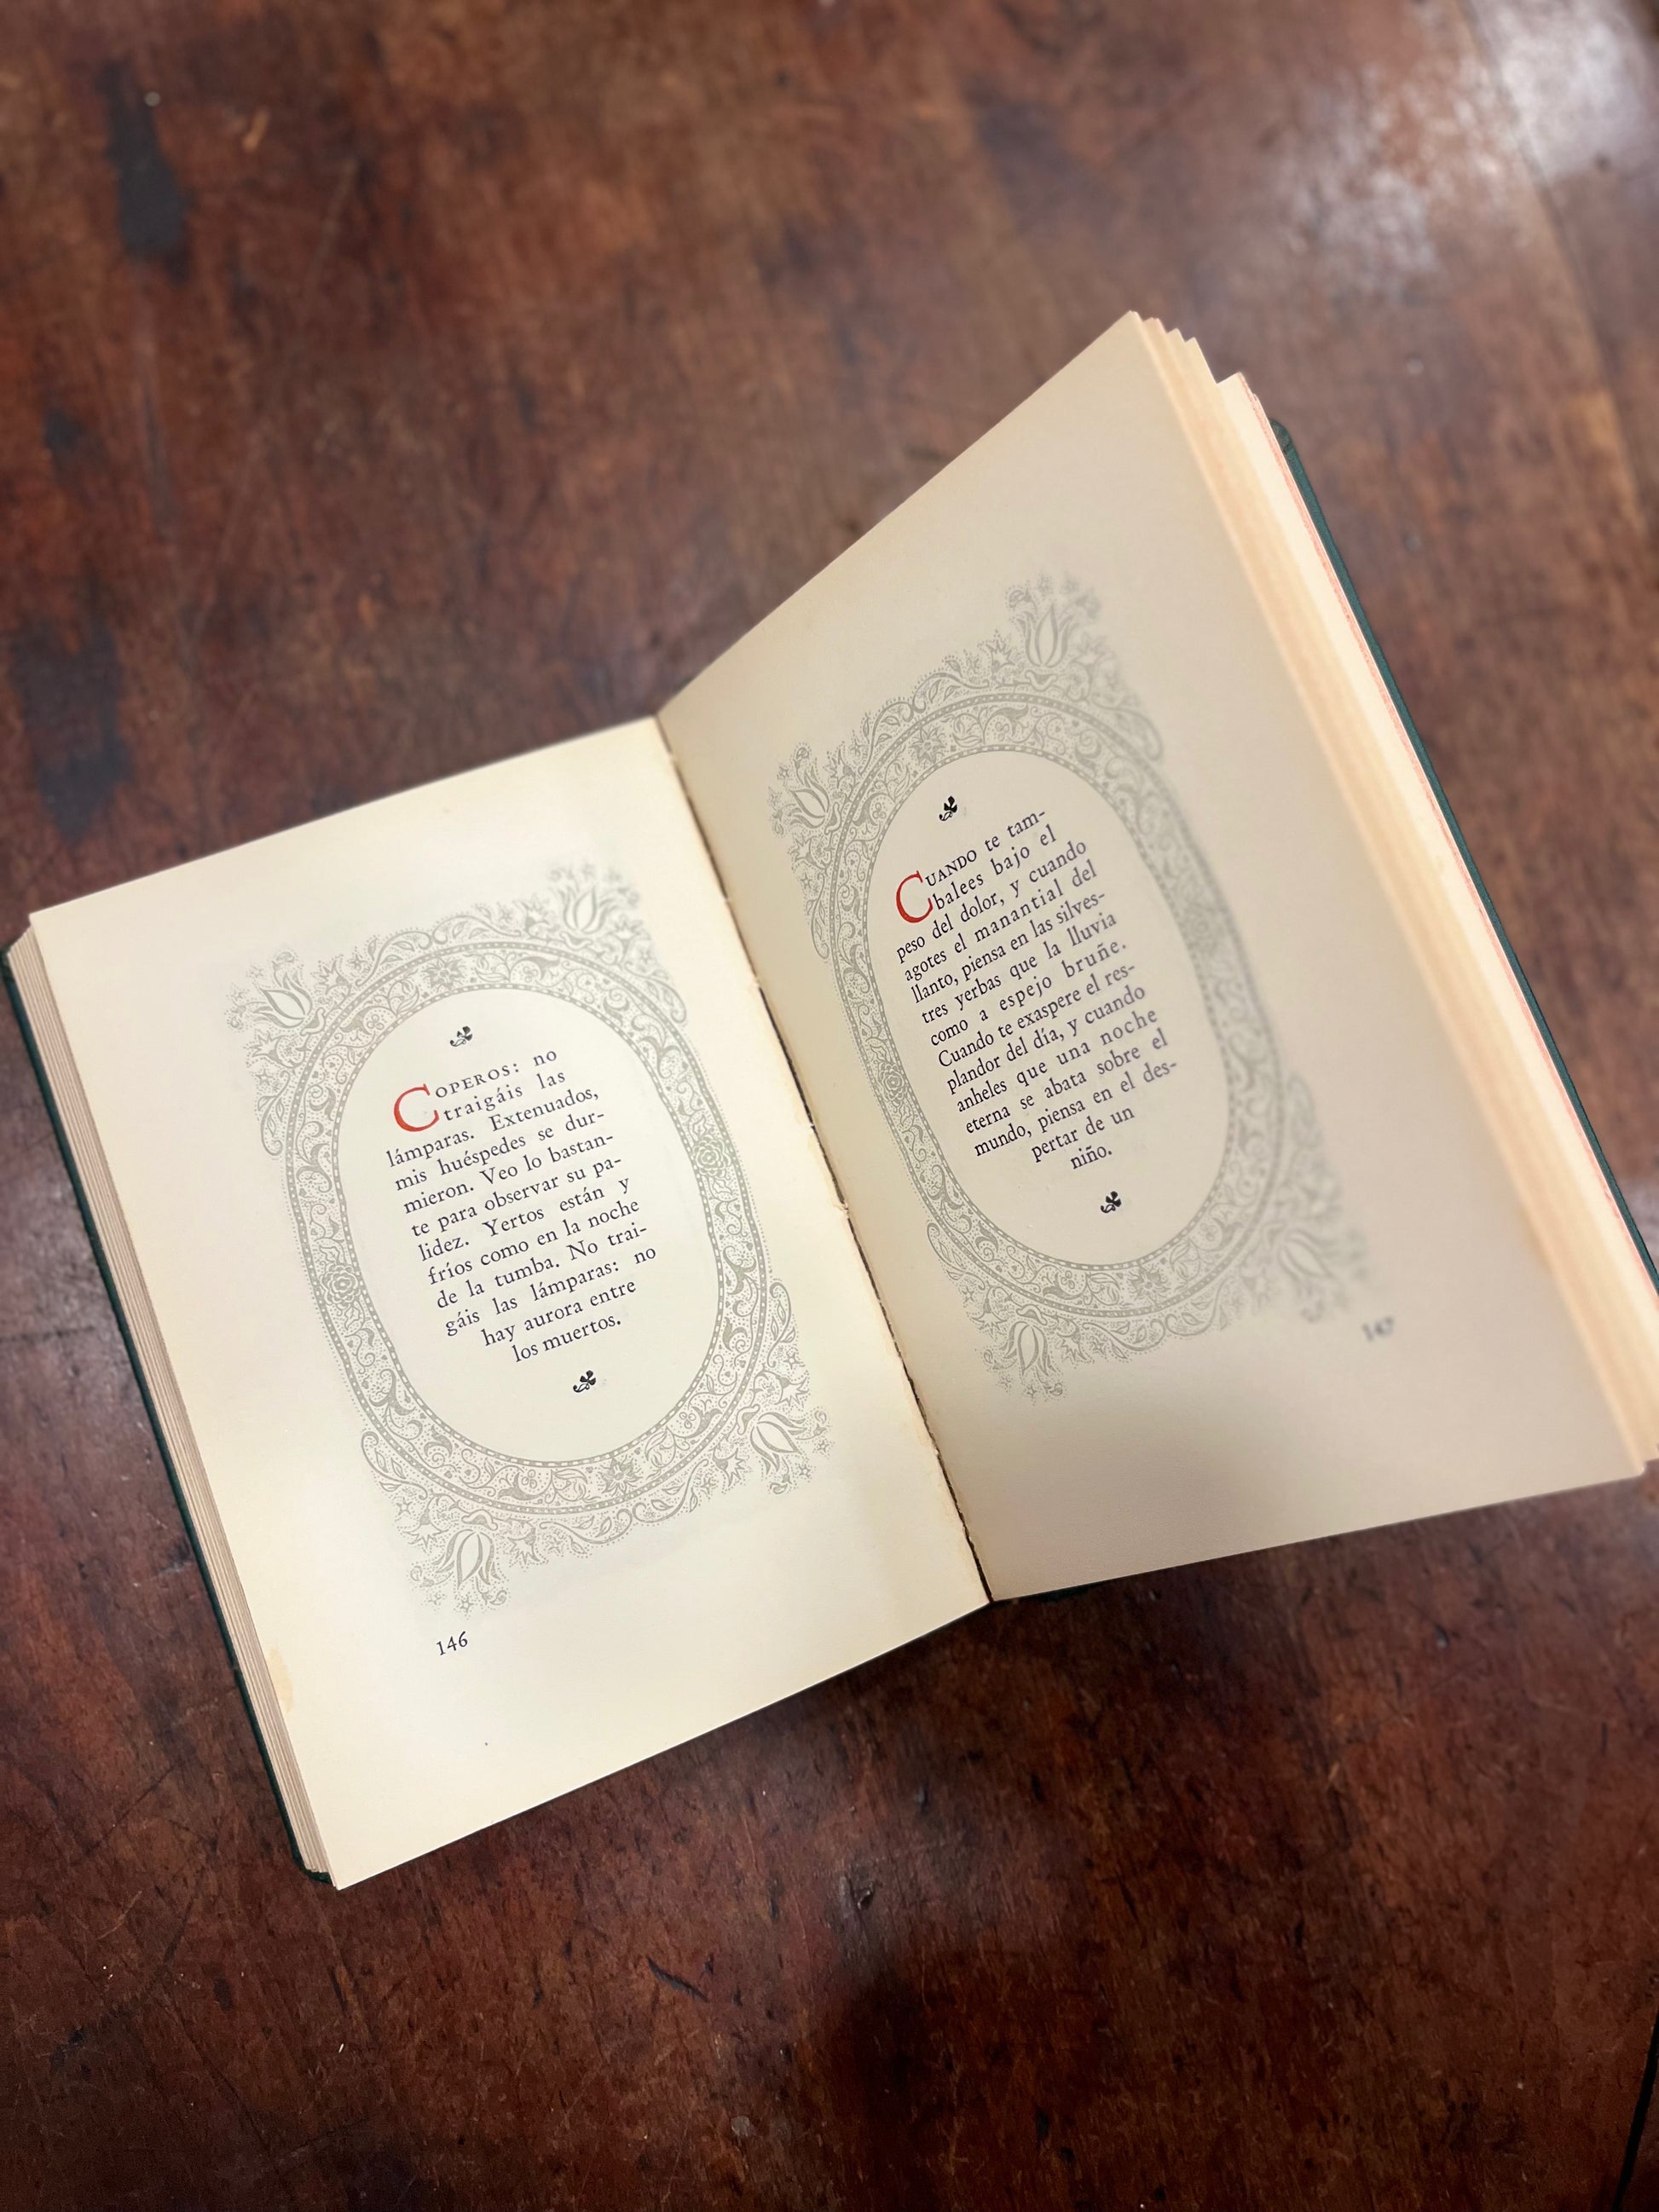 COPEROS: no
traigáis las
lámparas. Extenuados,
mis huéspedes se dur-
mieron. Veo lo bastan-
te para observar su pa-
lidez. Yertos están y
fríos como en la noche
de la tumba. No trai-
gáis las lámparas: no
hay aurora entre
los muertos.
146
CUANDO te tam-
balees bajo el
peso del dolor, y cuando
agotes el manantial del
llanto, piensa en las silves-
tres yerbas que la lluvia
como a espejo bruñe.
Cuando te exaspere el res-
plandor del día, y cuando
anheles que una noche
eterna se abata sobre el
mundo, piensa en el des-
pertar de un
niño.
147